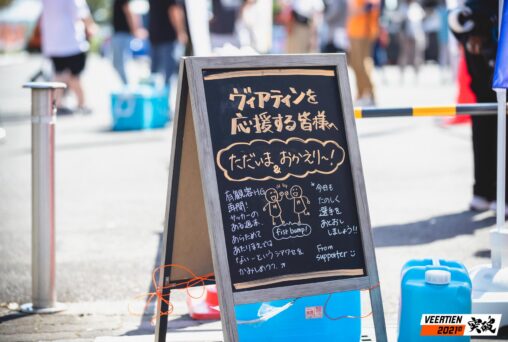 ヴィアティンを
応援する皆様へ
ただいま & おかえり〜!
有観客HG
再開!
サッカーの
ある週末、
あらためて
あたりまえでは
ない…というシアワセを
かみしめつつ、
fist bump!
今日も
たのしく
選手を
あとおし
しましょう!!
From
supporter
VEERTIEN
2021